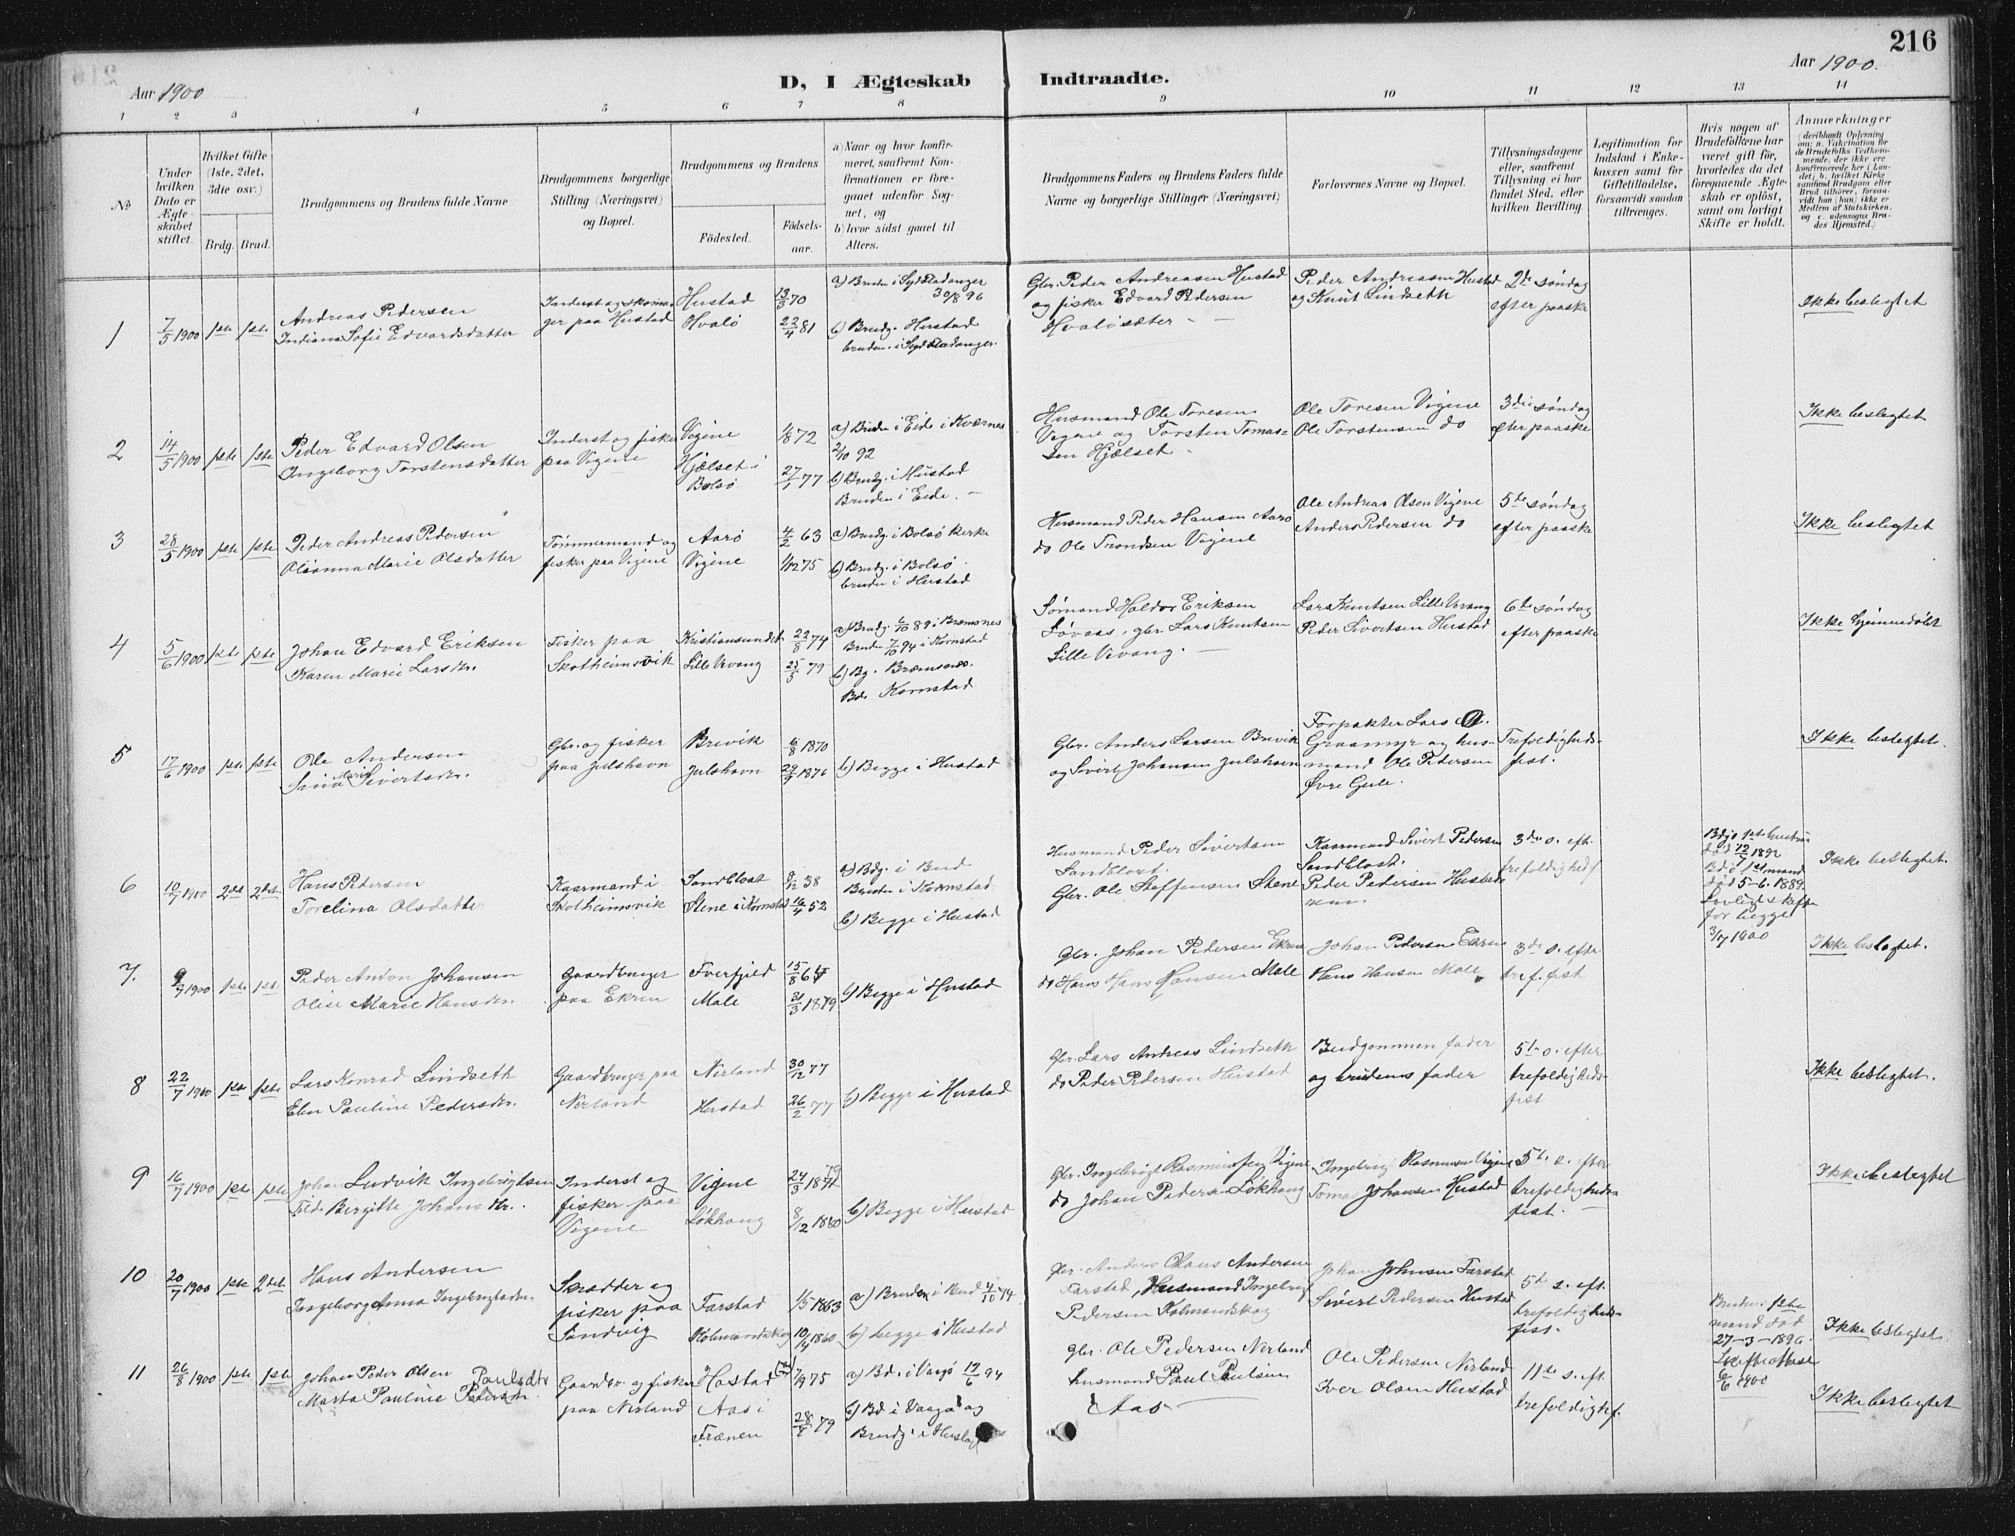 216
Aar 1900
D, I Ægteskab Indtraadte.
Aar 1900.
1 2 3 4 5 6 7 8 9 10 11 12 13 14
№
Under hvilken Dato er Ægteskabet stiftet.
Hvilket Gifte (1ste, 2det, 3die osv.)
Brdg. Brud.
Brudgommens og Brudens fulde Navne
Brudgommens borgerlige Stilling (Næringsvei) og Bopæl.
Brudgommens og Brudens
Födested.
Födselsaar.
a) Naar og hvor konfirmeret, saafremt Konfirmationen er foregaaet udenfor Sognet, og
b) hvor sidst gaaet til Alters.
Brudgommens Faders og Brudens Faders fulde Navne og borgerlige Stillinger (Næringsvei)
Forlovernes Navne og Bopæl.
Tillysningsdagene eller, saafremt Tillysning ei har fundet Sted, efter hvilken Bevilling
Legitimation for Indskud i Enkekassen samt for Giftetilladelse, forsaavidt saadan tiltrænges.
Hvis nogen af Brudefolkene har været gift för, hvorledes da det foregaaende Ægteskab er oplöst, samt om lovligt Skifte er holdt.
Anmærkninger
1 7/5 1900 1ste 1ste
Andreas Pedersen
Indiana Sofie Edvardsdatter
Inderst og skomager paa Hustad
Hustad 13/3 70
Hvalö 22/4 81
a) Bruden i Syd Radanger 30/8 96
b) Brudg. Hustad
bruden i Syd Radanger.
Gbr. Peder Andreasen Hustad
og fisker Edvard Pedersen
Hvalösæter
Peder Andreasen Hustad
og Knut Lindseth
2de söndag
efter paaske
Ikke beslegtet
2 14/5 1900 1ste 1ste
Peder Edvard Olsen
Ingeborg Torstensdatter
Inderst og fisker
paa Vigene
Vigene 1/8 72
Hjelset i
Bolsö 27/1 77
a) Bruden i Eide i Kværnes
2/10 92
b) Brudg. i Hustad
Bruden i Eide.
Husmand Ole Toresen
Vigene og Torsten Tomassen Hjælset
Ole Toresen Vigene
Ole Torstensen do
3die söndag
efter paaske
Ikke beslegtet
3 28/5 1900 1ste 1ste
Peder Andreas Pedersen
Olianna Marie Olsdatter
Tömmermand og
fisker paa Vigene
Aarö 4/2 63
Vigene 1/12 75
a) Brudg. i Bolsö kirke
b) Brudg. i Bolsö
bruden i Hustad
Husmand Peder Hansen Aarö
do Ole Trondsen Vigene
Ole Andreas Olsen Vigene
Anders Pedersen do
5te söndag
efter paaske
Ikke beslegtet
4 5/6 1900 1ste 1ste
Johan Edvard Eriksen
Karen Marie Larsdr.
Fisker paa
Skotheimsvik
Kristiansundet 22/8 74
Lille Vevang 25/5 79
a) Brudg. 6/10 89 i Bremsnes
Bruden 7/10 94 i Kornstad
b) Bg. Bremsnes
Bd. Kornstad
Sömand Haldor Eriksen
Lövaas, gbr. Lars Knutsen
Lille Vevang.
Lars Knutsen Lille Vevang
Peder Sivertsen Hustad
6te söndag
efter paaske
Ikke
5 17/6 1900 1ste 1ste
Ole Andersen
Sina Marie Sivertsdr.
Gbr. og fisker
paa Julshavn
Brevik 6/8 1870
Julshavn 29/9 1876
b) Begge i Hustad
Gbr. Anders Larsen Brevik
og Sivert Johansen Julshavn
Forpakter Lars A.
Graamyr og husmand Ole Pedersen
Øvre Gule.
Trefoldighedsfest.
Ikke beslegtet.
6 10/7 1900 2det 2det
Hans Pedersen
Torelina Olsdatter
Kaarmand i
Skotheimsvik
Sandblost 8/12 38
Stene i Kornstad 16/4 52
a) Bdg. i Bud
Bruden i Kornstad
b) Begge i Hustad
Husmand Peder Sivertsen
Sandblost.
Gbr. Ole Steffensen Stene
Kaarmand Sivert Pedersen
Sandblost.
Peder Pedersen
3die s. eft.
trefoldighedsf
Bdgs 1ste hustru
död 12/7 1892
Bd's 1ste mand
död 5-6. 1889.
Lovligt skifte
for begge
3/7 1900
Ikke beslegtet.
7. 9/7 1900 1ste 1ste
Peder Anton Johansen
Olise Marie Hansdr.
Gaardbruger
paa Ekren
Tverfjeld 15/8 64
Male 31/3 1879
b) Begge i Hustad
Gbr. Johan Pedersen Ekren
do Hans Hansen Male
Johan Pedersen Ekren
Hans Hansen Male
3die s. efter
tref. fest
Ikke beslegtet.
8 22/7 1900 1ste 1ste
Lars Konrad Lindseth
Elen Pauline Pedersdr.
Gaardbruger paa
Nerland
Nerland 30/12 77
Hustad 26/2 77
b) Begge i Hustad
Gbr. Lars Andreas Lindseth
do Peder Pedersen Hustad
Brudgommen fader
og brudens fader
5te s. efter
trefoldighedsfest
Ikke beslegtet.
9 16/7 1900 1ste 1ste
Johan Ludvik Ingebrigtsen
Birgitte Johansdr.
Inderst og
fisker paa
Vigene
Vigene 24/3 1871 79
Løkhaug 8/12 1880
b) Begge i Hustad
Gbr. Ingebrigt Rasmussen Vigene
do Johan Pedersen Løkhaug
Ingebrigt Rasmussen Vigene
Tomas Johansen Hustad
5te s. efter
trefoldighedsfest.
Ikke beslegtet
10 20/7 1900 1ste 2det
Hans Andersen
Ingeborg Anna Ingebrigtsdr.
Skrædder og
fisker paa
Sandvig
Farstad 1/5 1863
Kolmandskog 10/4 1860
a) Bruden i Bud 4/10 74.
b) begge i Hustad
Gbr. Anders Claus Andersen
Farstad, Husmand Ingebrigt
Pedersen Kolmandskog
Johan Johnsen Farstad
Sivert Pedersen Hustad
5te s. eft.
trefoldighedsfest.
Brudens 1ste
mand död
27-3-1896.
6/6 1900
Ikke beslegtet.
11 26/8 1900 1ste 1ste
Johan Peder Olsen
Marta Pauline Pedersdr. Paulsdtr
Gaardbr. og fisker
paa Nerland
Hostad 7/9 75
Aas i
Frænen 28/5 79
a) Bd. i Vaagö 17/6 94
b) Bd i Vaagö og
Brudg. i Hustad
Gbr. Ole Pedersen Nerland
husmand Paul Paulsen
Aas
Ole Pedersen Nerland
Iver Olsen Hustad
11te s. eft.
trefoldigf.
Ikke beslegtet